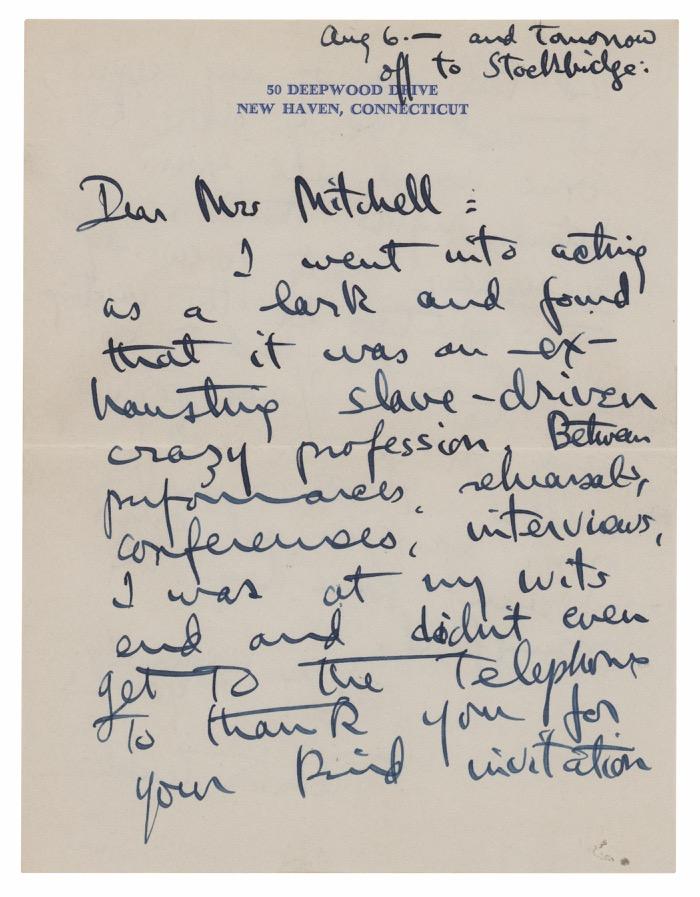 Aug 6.— and tomorrow
off to Stockbridge:
50 DEEPWOOD DRIVE
NEW HAVEN, CONNECTICUT
Dear Mrs Mitchell :
I went into acting
as a lark and found
that it was an ex-
hausting slave-driven
crazy profession. Between
performances, rehearsals,
conferences, interviews,
I was at my wits
end and didn't even
get to the telephone
to thank you for
your kind invitation